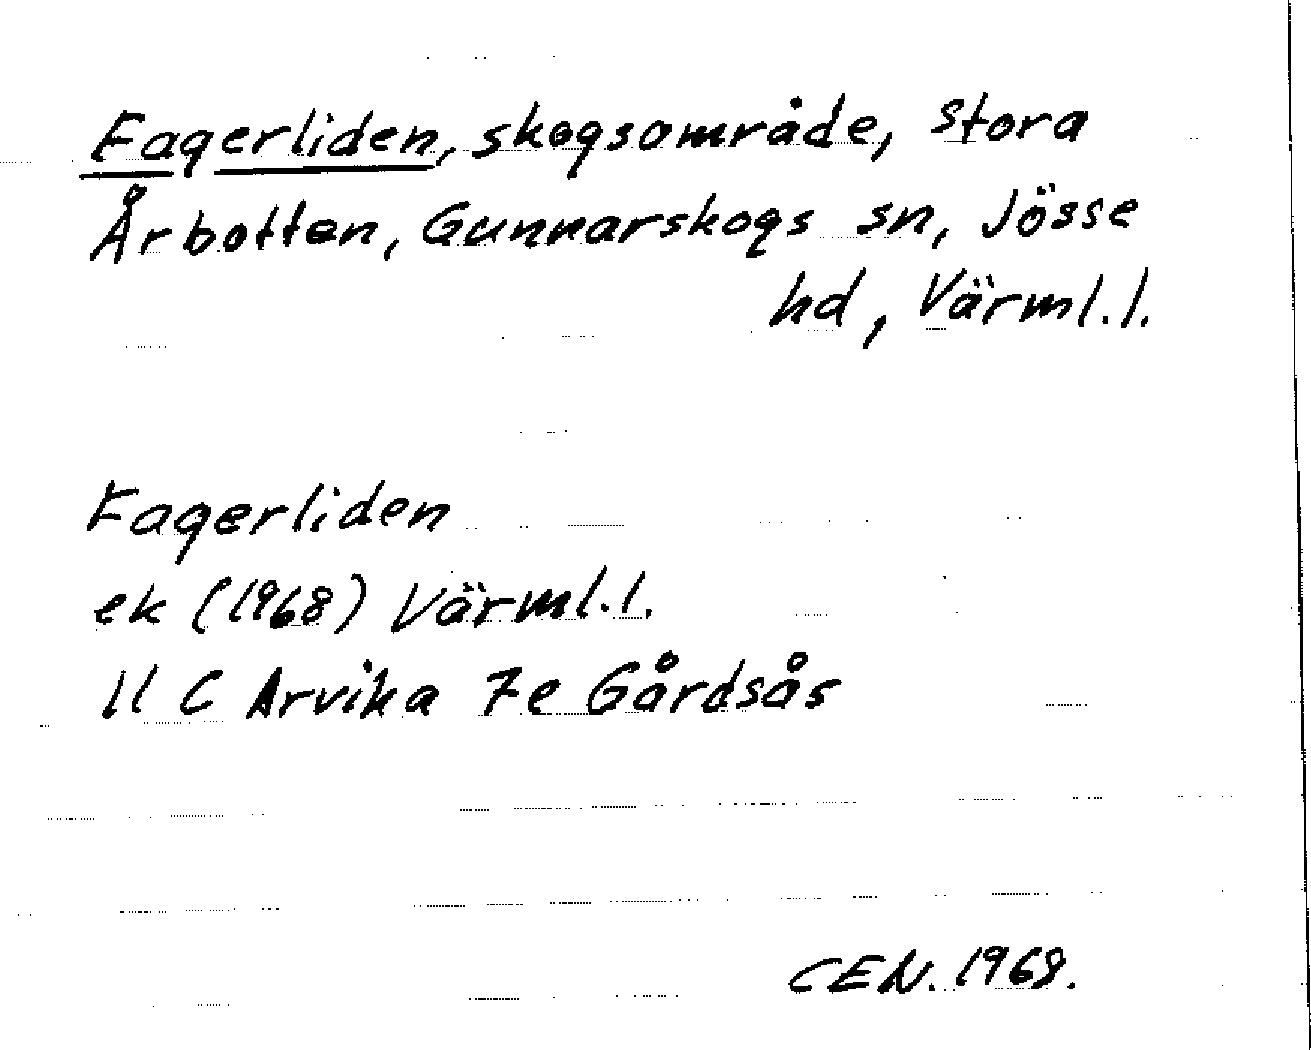 Fagerliden, skogsområde, Stora
Årbotten, Gunnarskogs sn, Jösse
hd, Värml.l.
Fagerliden
ek (1968) Värml.l.
11 C Arvika 7e Gårdsås
CEN. 1968.